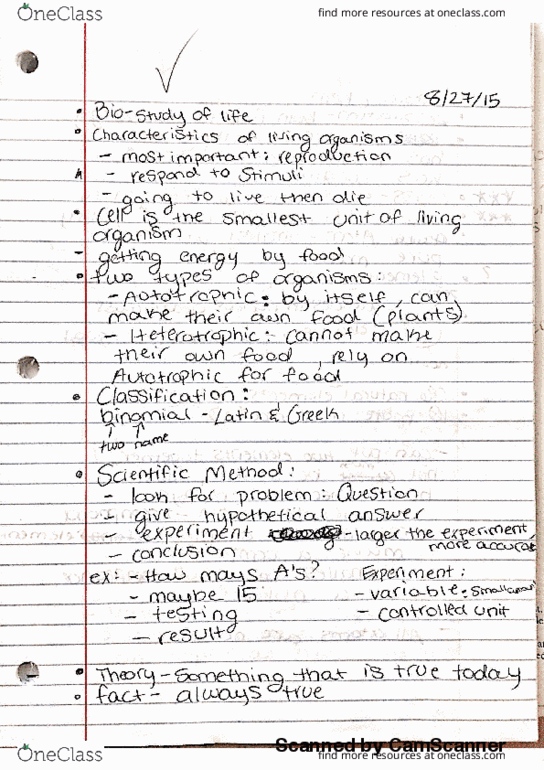 OneClass
find more resources at oneclass.com
8/27/15
• Bio-study of life
• Characteristics of living organisms
- most important: reproduction
- respond to stimuli
- going to live then die
• Cell is the smallest unit of living
organism
- getting energy by food
• two types of organisms:
- Autotrophic: by itself, can
make their own food (plants)
- Heterotrophic: cannot make
their own food, rely on
Autotrophic for food
• Classification:
binomial - Latin & Greek
↑ ↑
two name
• Scientific Method:
- look for problem: Question
- give hypothetical answer
- experiment - larger the experiment,
more accurate
- conclusion
ex: - How mays A's? Experiment:
- maybe 15 - variable:
- testing - controlled unit
- result
• Theory - Something that is true today
• fact - always true
Scanned by CamScanner
OneClass
find more resources at oneclass.com